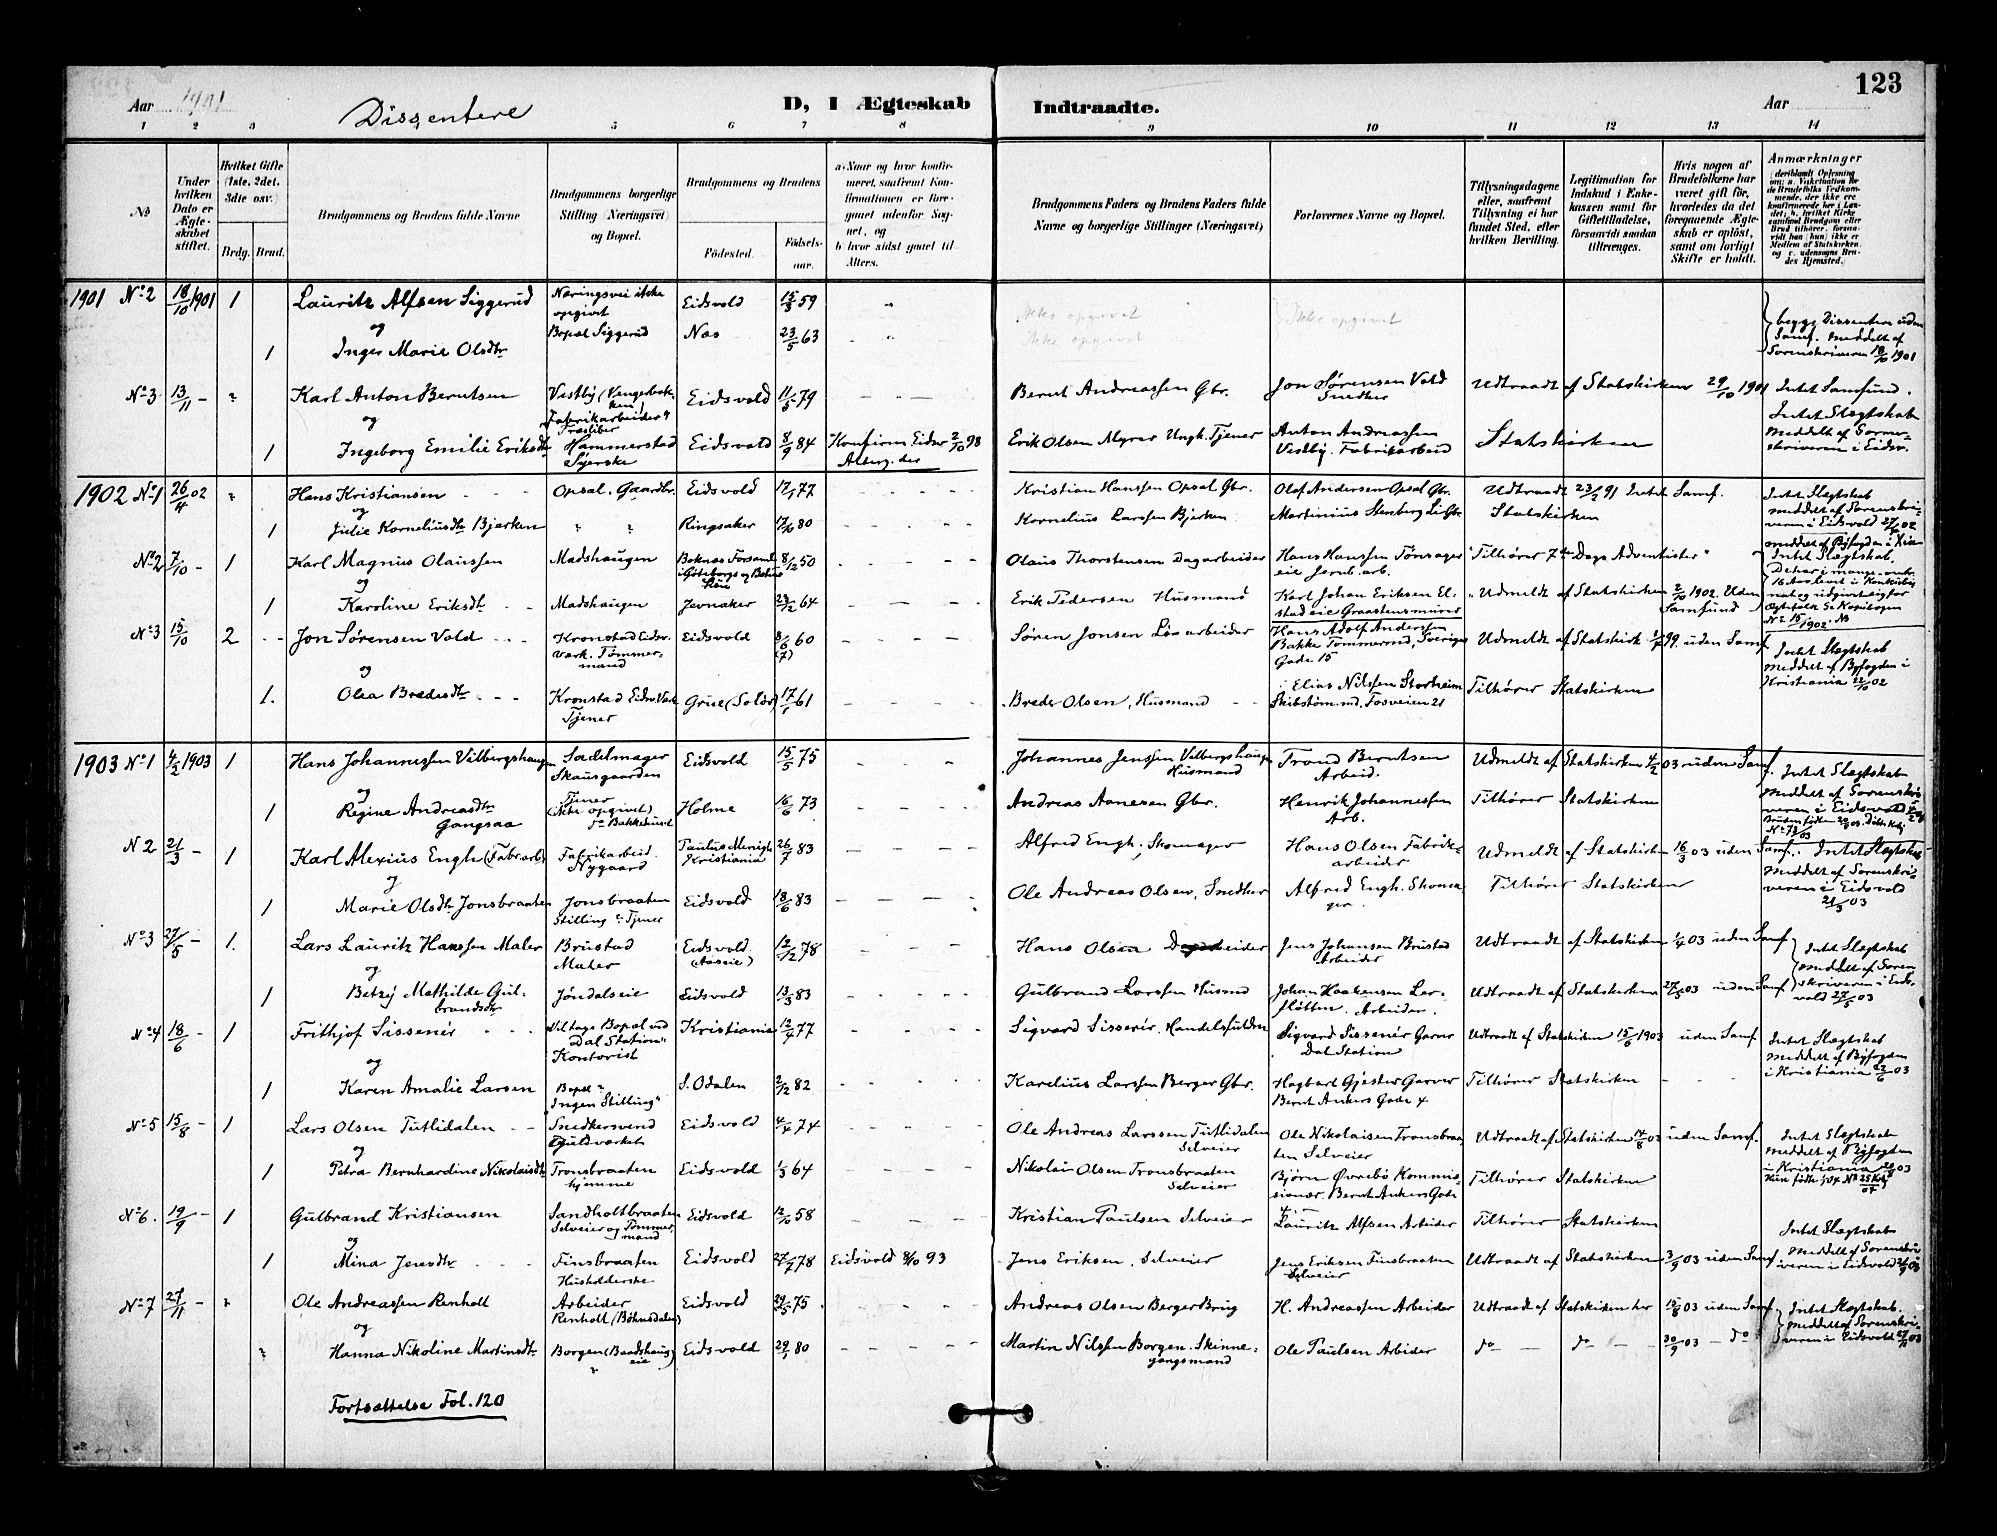 Aar 1901 Dissentere D, I Ægteskab Indtraadte. Aar 123
1 2 3 5 6 7 8 9 10 11 12 13 14
№
Under hvilken Dato er Ægte-skabet stiftet.
Hvilket Gifte (1ste, 2det, 3die osv.)
Brdg. Brud.
Brudgommens og Brudens fulde Navne
Brudgommens borgerlige Stilling (Næringsvei) og Bopæl.
Brudgommens og Brudens
Fødested. Fødsels-aar.
a. Naar og hvor konfir-meret, saafremt Kon-firmationen er fore-gaaet udenfor Sog-net, og
b. hvor sidst gaaet til Alters.
Brudgommens Faders og Brudens Faders fulde Navne og borgerlige Stillinger (Næringsvei)
Forlovernes Navne og Bopæl.
Tillysningsdagene eller, saafremt Tillysning ei har fundet Sted, efter hvilken Bevilling.
Legitimation for Indskud i Enke-kassen samt for Giftetilladelse, forsaavidt saadan tiltrænges.
Hvis nogen af Brudefolkene har været gift før, hvorledes da det foregaaende Ægte-skab er opløst, samt om lovligt Skifte er holdt.
Anmærkninger
1901 No 2 18/10 1901 1 Lauritz Alfsen Siggerud Næringsvei ikke opgivet Eidsvold 15/3 59 Ikke opgivet Ikke opgivet
og Bopæl Siggerud
1 Inger Marie Olsdtr Nes 23/5 63 Ikke opgivet
begge Dissentere uden Samf. Meddelt af Sorenskriveren 18/10 1901
No 3 13/11 - Karl Anton Berntsen Vestby Fabrikarbeider Eidsvold 11/5 79 Bernt Andreassen Gbr. Jon Sørensen Vold Snedker Udtraadt af Statskirken 29/10 1901 Intet Samfund.
og
1 Ingeborg Emilie Eriksdtr Hammerstad Syerske Eidsvold 8/9 84 Konfirm Eidsv 2/10 98 Erik Olsen Myrer Ungk. Tjener Anton Andreassen Vestby. Fabrikarbeid Statskirken
Intet Slegtskab Meddelt af Soren-skriveren i Eidsv.
1902 No 1 26/4 02 Hans Kristiansen Opsal. Gaardbr. Eidsvold 17/1 77 Kristian Hanssen Opsal Gbr. Olaf Andersen Opsal Gbr. Udtraadt 23/2 91 Intet Samf.
og
1 Julie Korneliusdtr Bjerken Ringsaker 17/10 80 Kornelius Larssen Bjerken Martinius Stenberg Statskirken
Intet Slegtskab meddelt af Sorenskri-veren i Eidsvold 02
No 2 7/10 - 1 Karl Magnus Olaussen Madshaugen 8/12 50 Olaus Thorstensen Dagarbeider Hans Hanssen Tønsager eie Jernb. arb. "Tilhører 7de Dags Adventister"
og
1 Karoline Eriksdtr Madshaugen Jevnaker 23/12 64 Erik Pedersen Husmand Karl Johan Eriksen El-stad eie Graastensmurer Udmeldt af Statskirken 2/10 1902 Uden Samfund
Intet Slegtskab.
No 3 15/10 2 Jon Sørensen Vold Kronstad Eidsv. værk. Tømmer-mand Eidsvold 8/6 60 (7) Søren Jonsen Løsarbeider Hans Adolf Andersen Bakke Tømmermd, Sveriges Gade 15 Udmeldt af Statskirk 99. uden Samf
og
1. Olea Bredesdtr Kronstad Eidsv. Værk Tjener Grue (Solør) 17/1 61 Brede Olsen, Husmand Elias Nilssen Storheim Skibstøm.md. Fosveien 21 Tilhører Statskirken
Intet Slegtskab meddelt af Byfogden i Kristiania 22/10 02
1903 No 1 4/2 1903 1 Hans Johannessen Vilbergshaugen Sadelmager Skausgaarden Eidsvold 15/5 75 Johannes Jenssen Vilbergshaugen Husmand Trond Berntsen Arbeid. Udmeldt af Statskirken 4/2 03 uden Samf.
og
1 Regine Andreasdtr Gangsaa Tjener (ikke opgivet) Holme 16/6 73 Andreas Aanesen Gbr. Henrik Johannessen Arb. Tilhører Statskirken
Intet Slegtskab Meddelt af Sorenskri-veren i Eidsvold
N 2 21/3 - 1 Karl Alexius Engh (Fabr.arb) Fabrikarbeid. Nygaard Paulus Menigh Kristiania 26/7 83 Alfred Engh, Skomager Hans Olsen Fabrik-arbeider Udmeldt af Statskirken 16/3 03 uden Samf.
og
1 Marie Olsdtr Jonsbraaten Jonsbraaten Stilling: Tjener Eidsvold 18/6 83 Ole Andreas Olsen, Snedker Alfred Engh Skoma-ger Tilhører Statskirken
Intet Slegtskab Meddelt af Sorenskri-veren i Eidsvold 21/3 03
No 3 27/5 - 1. Lars Lauritz Hanssen Maler Brustad Maler Eidsvold 12/12 78 Hans Olsen Dagarbeider Jens Johansen Brustad Arbeider Udtraadt af Statskirken 1/4 03 uden Samf
og
1 Betzy Mathilde Gul-brandsdtr Jøndalseie Eidsvold 13/3 83 Gulbrand Larssen Husmd Johan Haakensen Ler-fløtten. Arbeider. Udtraadt af Statskirken 27/5 03 uden Samf
Intet Slegtskab meddelt af Soren skriveren i Eids-vold 27/5 03
No 4 18/6 - 1 Frithjof Sissenér Bopæl ved Dal Station Kontorist Kristiania 12/4 77 Sigvard Sissenér, Handelsfuldm Sigvard Sissenér Garver Dal Station Udtraadt af Statskirken 15/6 1903 uden Samf
og
1 Karen Amalie Larsen Bopæl Ingen Stilling S. Odalen 2/12 82 Karelius Larssen Berger Gbr. Hagbart Gjester Garver Bernt Ankers Gade 4 Tilhører Statskirken
Intet Slegtskab Meddelt af Byfogden i Kristiania 22/6 03
No 5 15/8 - 1 Lars Olsen Tutlidalen Snedkersvend Guldværket Eidsvold 4/4 74 Ole Andreas Larssen Tutlidalen Selveier Ole Nikolaisen Tronsbraa-ten Selveier Udtraadt af Statskirken 14/8 03 uden Samf.
og
1 Petra Bernhardine Nikolaisdtr Tronsbraaten hjemme Eidsvold 1/3 64 Nikolai Olsen Tronsbraaten Selveier Bjørn Øvrebø Kommis-sionær. Bernt Ankers Gade Tilhører Statskirken
Intet Slegtskab Meddelt af Byfogden i Kristiania
No 6. 19/9 - 1 Gulbrand Kristiansen Sandholtbraaten Selveier og Tømmer mand Eidsvold 12/10 58 Kristian Paulsen Selveier Lauritz Alfsen Arbeider Tilhører Statskirken
og
1 Mina Jensdtr Finsbraaten Husholderske Eidsvold 27/7 78 Eidsvold 8/10 93 Jens Eriksen, Selveier Jens Eriksen Finsbraaten Selveier Udtraadt af Statskirken 3/9 03 uden Samf
Intet Slegtskab Meddelt af Sorenskri-veren i Eidsvold
No 7 27/11 - Ole Andreassen Renholt Arbeider Renholt (Bøhnsdalen) Eidsvold 29/5 75 Andreas Olsen Berger Brug H. Andreassen Arbeider Udtraadt af Statskirken 15/8 03 uden Samf
og
Hanna Nikoline Martinsdtr Borgen Eidsvold 29/1 80 Martin Nilssen Borgen. Skinne-gangsmand Ole Paulsen Arbeider do do 30/9 03 - do
Intet Slegtskab. meddelt af Sorenskri-veren i Eidsvold
Fortsættelse Fol. 120